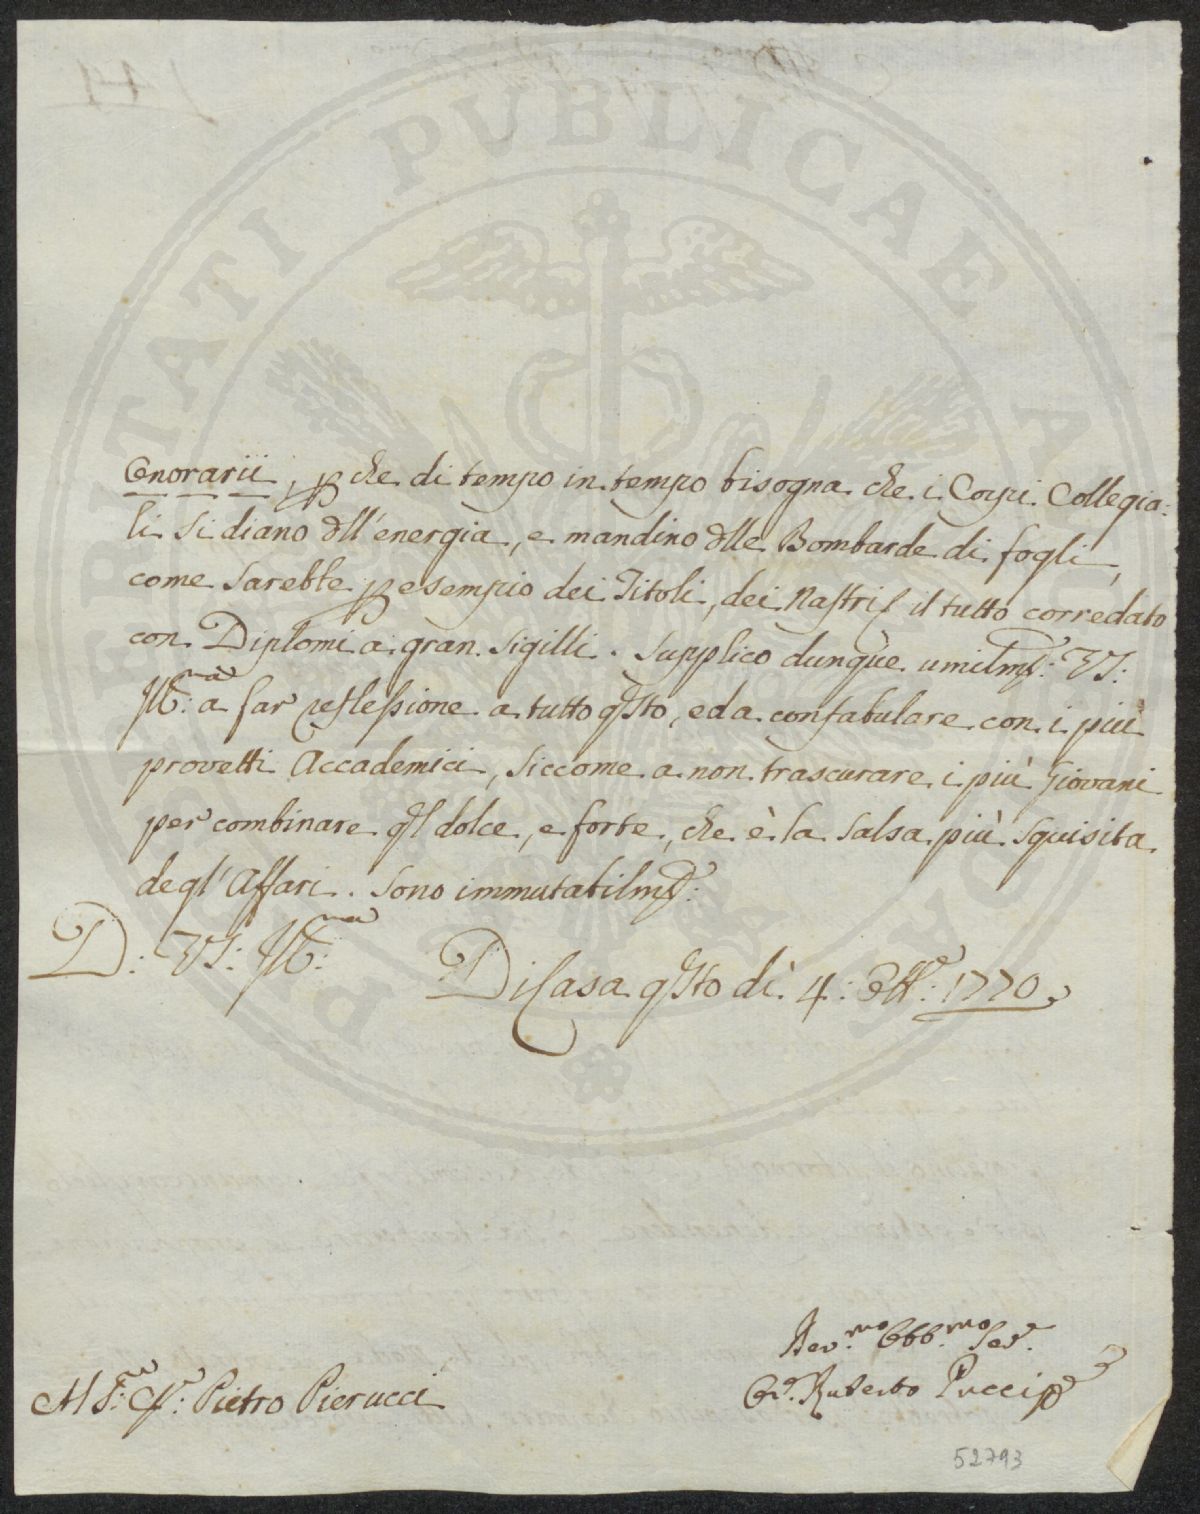 PROSPERITATI PUBLICAE AUGENDAE
Onorarii, p che di tempo in tempo bisogna che i Corpi Collegia:
li si diano dll'energia, e mandino dlle Bombarde di fogli,
come sarebbe p esempio dei Titoli, dei Nastri il tutto corredato
con Diplomi a gran sigilli. Supplico dunque umilmte: VS:
Illma: a far reflessione a tutto qsto, ed a confabulare con i più
provetti Accademici, siccome a non trascurare i più Giovani
per combinare ql dolce, e forte, che è la salsa più squisita
degl'Affari. Sono immutabilmte:
D: VS: Illma:
Di Casa qsto dì 4: Ottre: 1770
Devmo: Obbmo: Ser.
Ruberto Pucci
Pietro Pierucci
52793